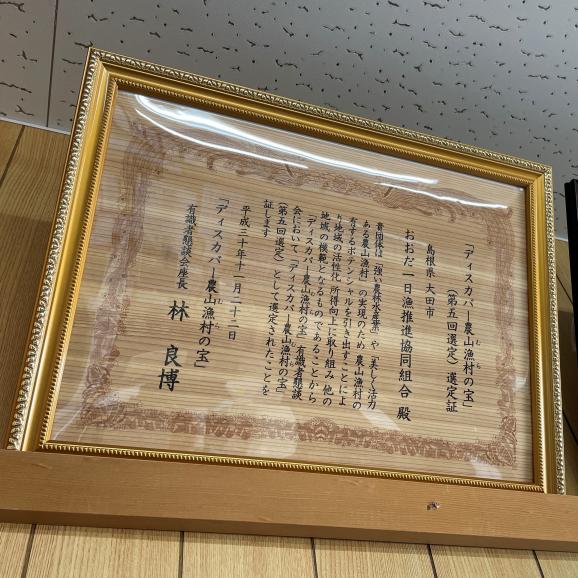 「ディスカバー農山漁村の宝」
むら
(第五回選定) 選定証
島根県 大田市
おおだ一日漁推進協同組合 殿
貴団体は「強い農林水産業」や「美しく活力
ある農山漁村」の実現のため 農山漁村の
有するポテンシャルを引き出すことによ
り地域の活性化 所得向上に取り組み 他の
地域の模範となるものであることから
「ディスカバー農山漁村の宝」有識者懇談
むら
会において「ディスカバー農山漁村の宝」
むら
(第五回選定) として選定されたことを
証します
平成三十年十一月二十二日
「ディスカバー農山漁村の宝」
むら
有識者懇談会座長 林 良博